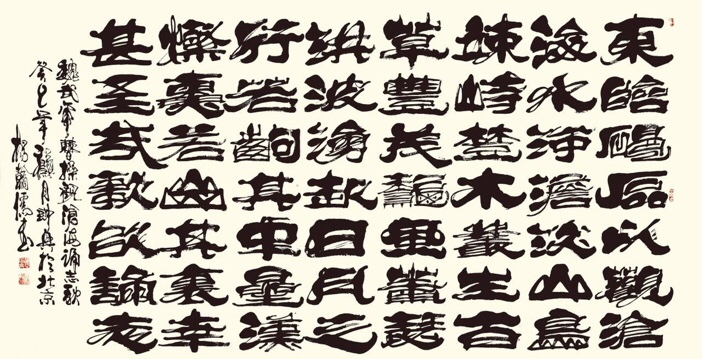 東臨碣石以觀滄
海水澹淡山島
竦峙木叢生百
草豐茂龝風蕭瑟
洪波湧起日月之
行若齣其中星漢
燦若出其裏幸
甚至哉歌以誦志
魏武帝曹操觀滄海誦志歌
癸巳年月於北京